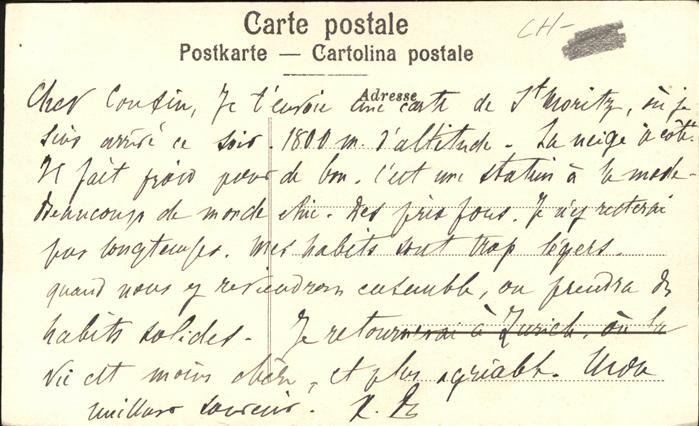 Carte postale
CH-
Postkarte — Cartolina postale
Adresse
Cher Cousin, Je t'envoie une carte de St Moritz, où je
suis arrivé ce soir. 1800 m. d'altitude - La neige à côté.
Il fait froid pour de bon. C'est une station à la mode -
Beaucoup de monde chic. Des prix fous. Je n'y resterai
pas longtemps. Mes habits sont trop légers.
quand nous y reviendrons ensemble, on prendra des
habits solides - Je retournerai à Zurich, où la
vie est moins chère, et plus agréable.
meilleur souvenir.